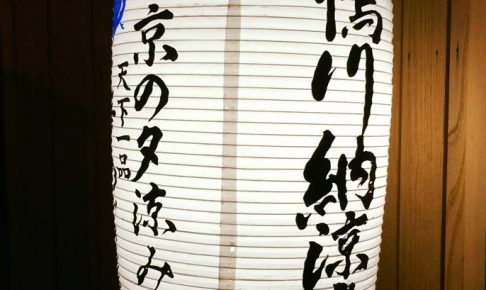 鴨川納涼
京の夕涼み
天下一品